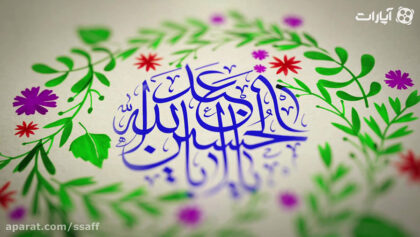 آپارات
يا ابا عبد الله الحسين
aparat.com/ssaff